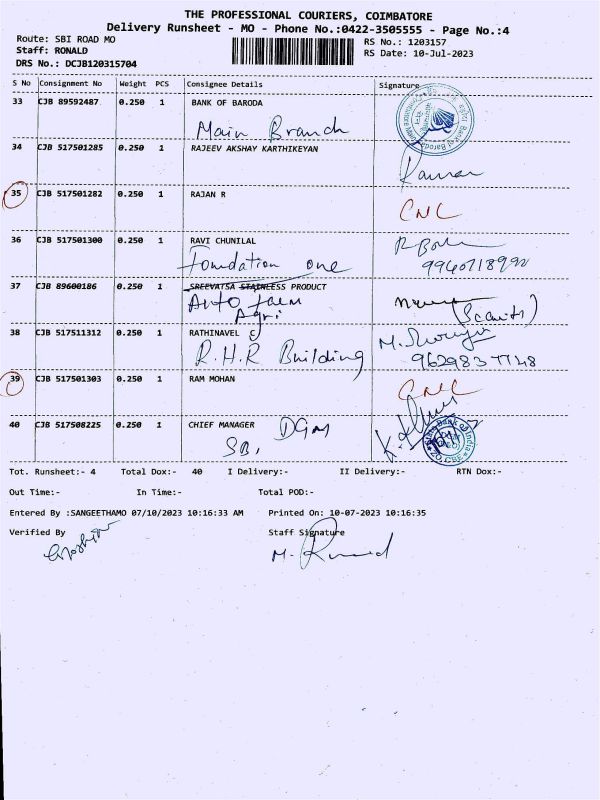 THE PROFESSIONAL COURIERS, COIMBATORE
Delivery Runsheet - MO - Phone No.:0422-3505555 - Page No.:4
Route: SBI ROAD MO
RS No.: 1203157
Staff: RONALD
RS Date: 10-Jul-2023
DRS No.: DCJB120315704
S No Consignment No Weight PCS Consignee Details Signature
33 CJB 89592487 0.250 1 BANK OF BARODA
Main Branch
34 CJB 517501285 0.250 1 RAJEEV AKSHAY KARTHIKEYAN
35 CJB 517501282 0.250 1 RAJAN R
CNL
36 CJB 517501300 0.250 1 RAVI CHUNILAL
Foundation one
37 CJB 89600186 0.250 1 SREEVATSA STAINLESS PRODUCT
Auto
Agri
38 CJB 517511312 0.250 1 RATHINAVEL C
R.H.R Building
39 CJB 517501303 0.250 1 RAM MOHAN
CNL
40 CJB 517508225 0.250 1 CHIEF MANAGER DGM
SBI
Tot. Runsheet:- 4 Total Dox:- 40 I Delivery:- II Delivery:- RTN Dox:-
Out Time:- In Time:- Total POD:-
Entered By :SANGEETHAMO 07/10/2023 10:16:33 AM Printed On: 10-07-2023 10:16:35
Verified By Staff Signature